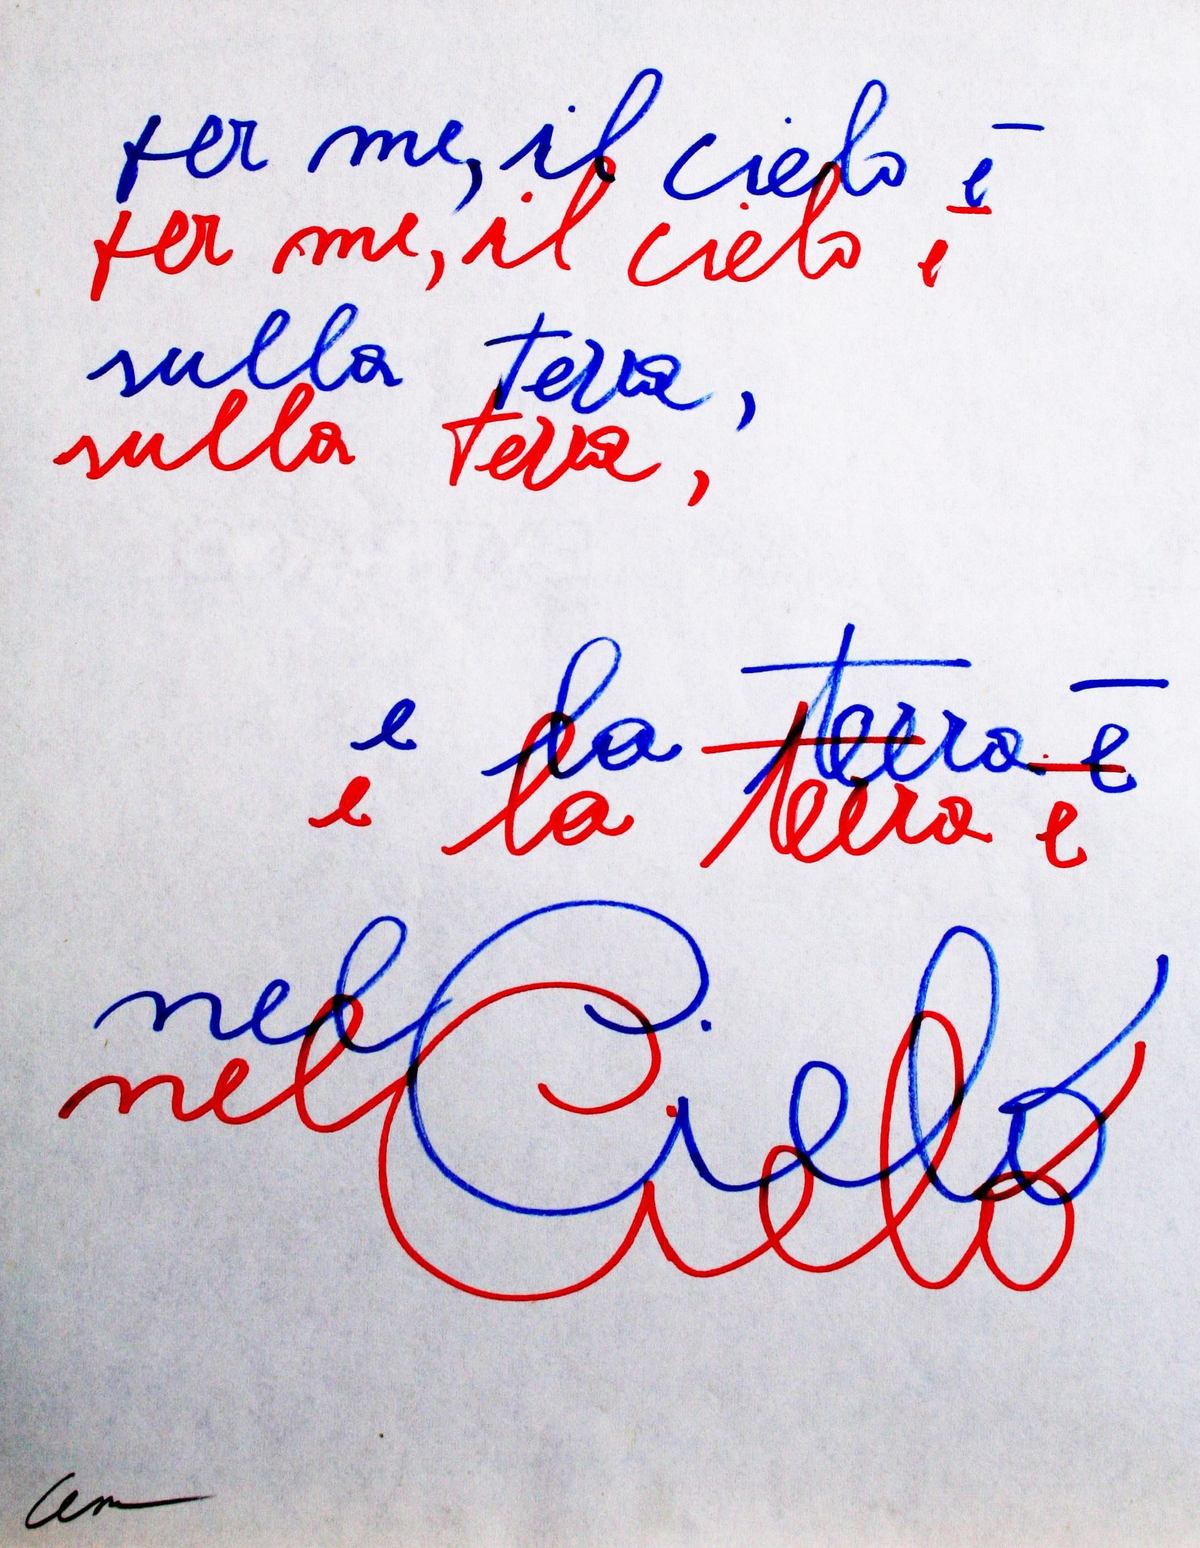 per me, il cielo è
per me, il cielo è
sulla terra,
sulla terra,
e la terra è
e la terra è
nel Cielo
nel Cielo